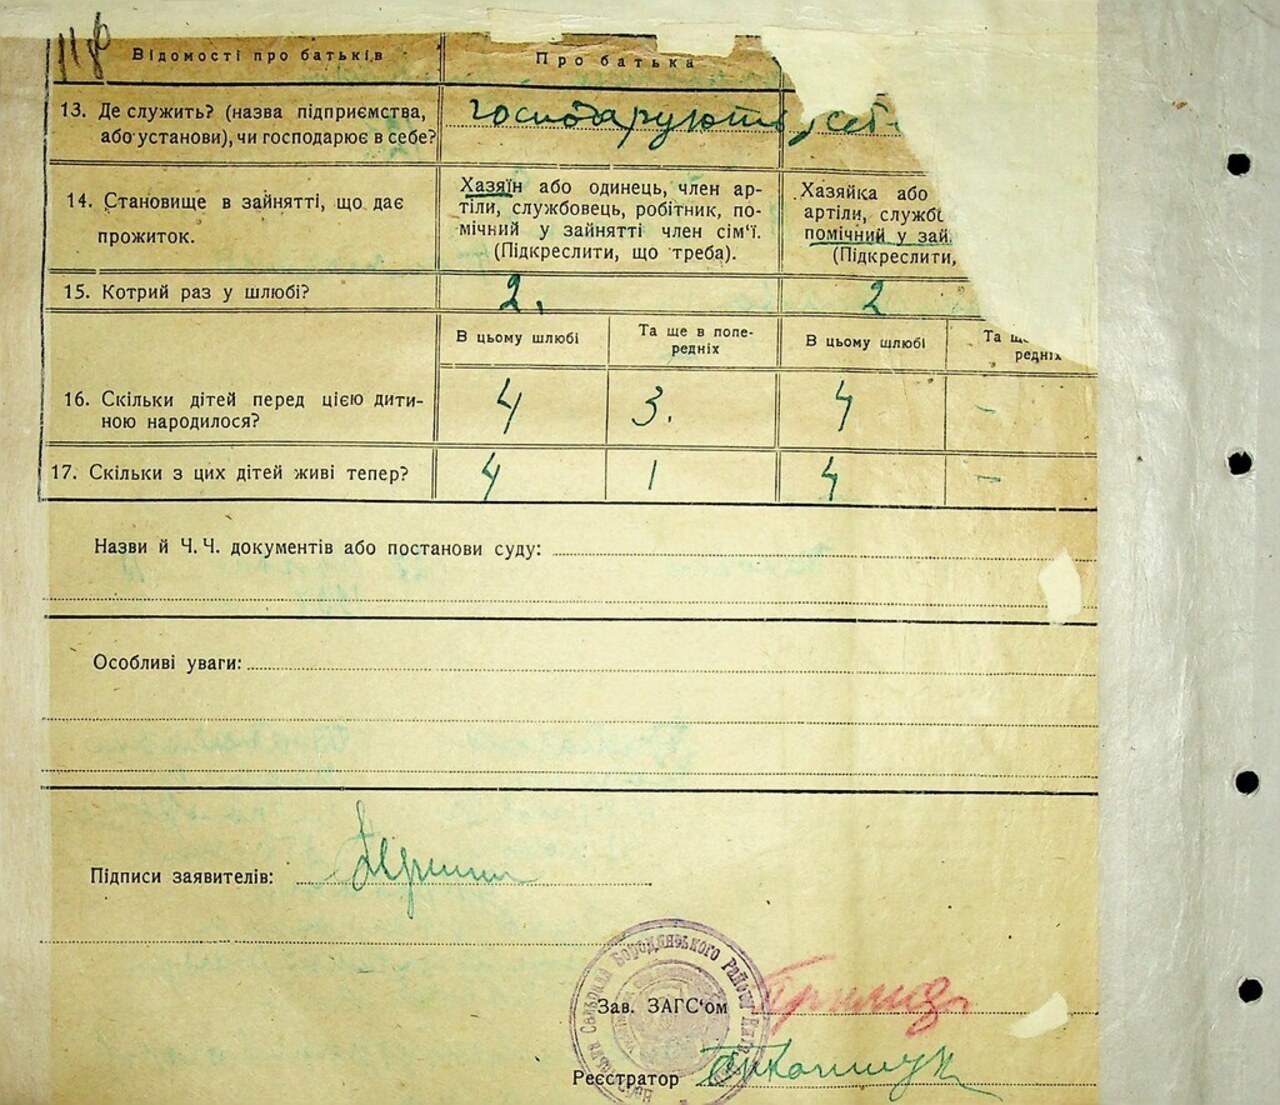 118
Відомості про батьків
Про батька
13. Де служить? (назва підприємства,
або установи), чи господарює в себе?
господарують у себе
14. Становище в зайнятті, що дає
прожиток.
Хазяїн або одинець, член ар-
тіли, службовець, робітник, по-
мічний у зайнятті член сім'ї.
(Підкреслити, що треба).
Хазяйка або
артіли, службо
помічний у зай.
(Підкреслити,
15. Котрий раз у шлюбі?
2.
2
В цьому шлюбі
Та ще в попе-
редніх
В цьому шлюбі
Та ще
редніх
16. Скільки дітей перед цією дити-
ною народилося?
4
3.
4
-
17. Скільки з цих дітей живі тепер?
4
1
4
-
Назви й Ч. Ч. документів або постанови суду:
Особливі уваги:
Підписи заявителів:
Сельрада Бородянського Району
Зав. ЗАГС'ом
Реєстратор